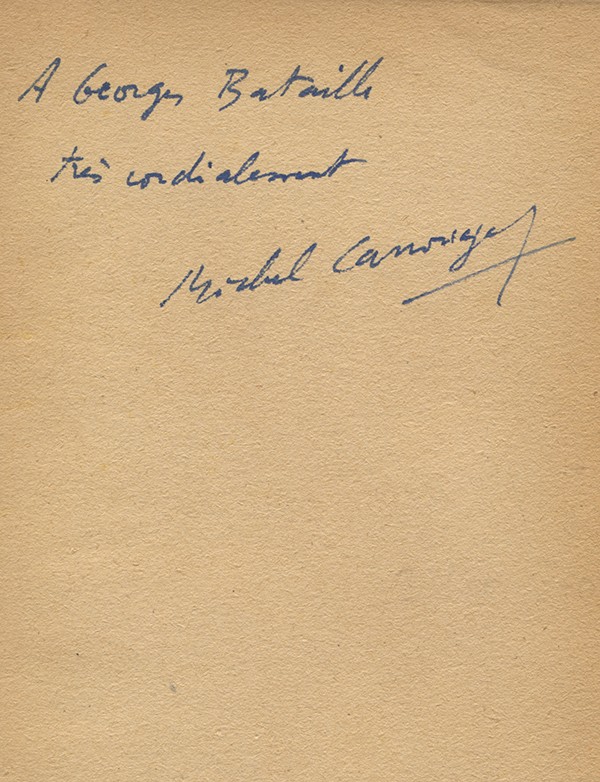 A Georges Bataille
très cordialement
Michel Carrouges